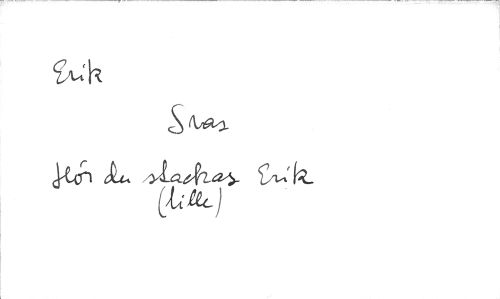 Erik
Svas
Hör du stackas Erik
(lille)